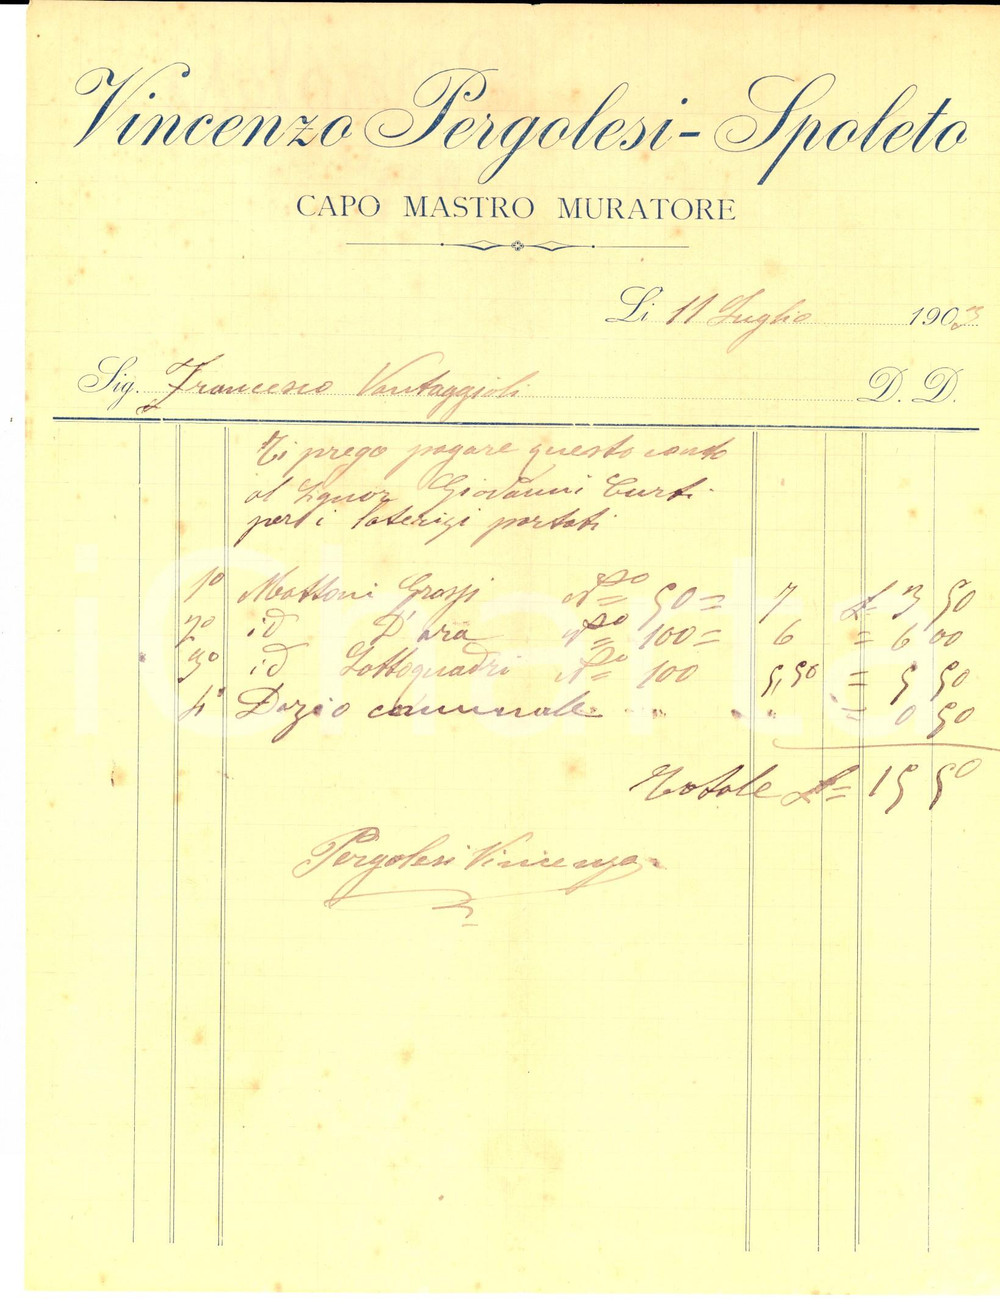 Vincenzo Pergolesi - Spoleto
CAPO MASTRO MURATORE
Li 11 Luglio 1903
Sig. Francesco Vantaggioli D. D.
Ti prego pagare questo conto
al Signor Giovanni Curti
per i laterizi portati
1º Mattoni Grossi Nº= 50= 7 £= 3 50
2º id D'ara Nº= 100= 6 = 6 00
3º id Sottoquadri Nº= 100 5,50 = 5 50
4º Dazio comunale " = 0 50
Totale £= 15 50
Pergolesi Vincenzo